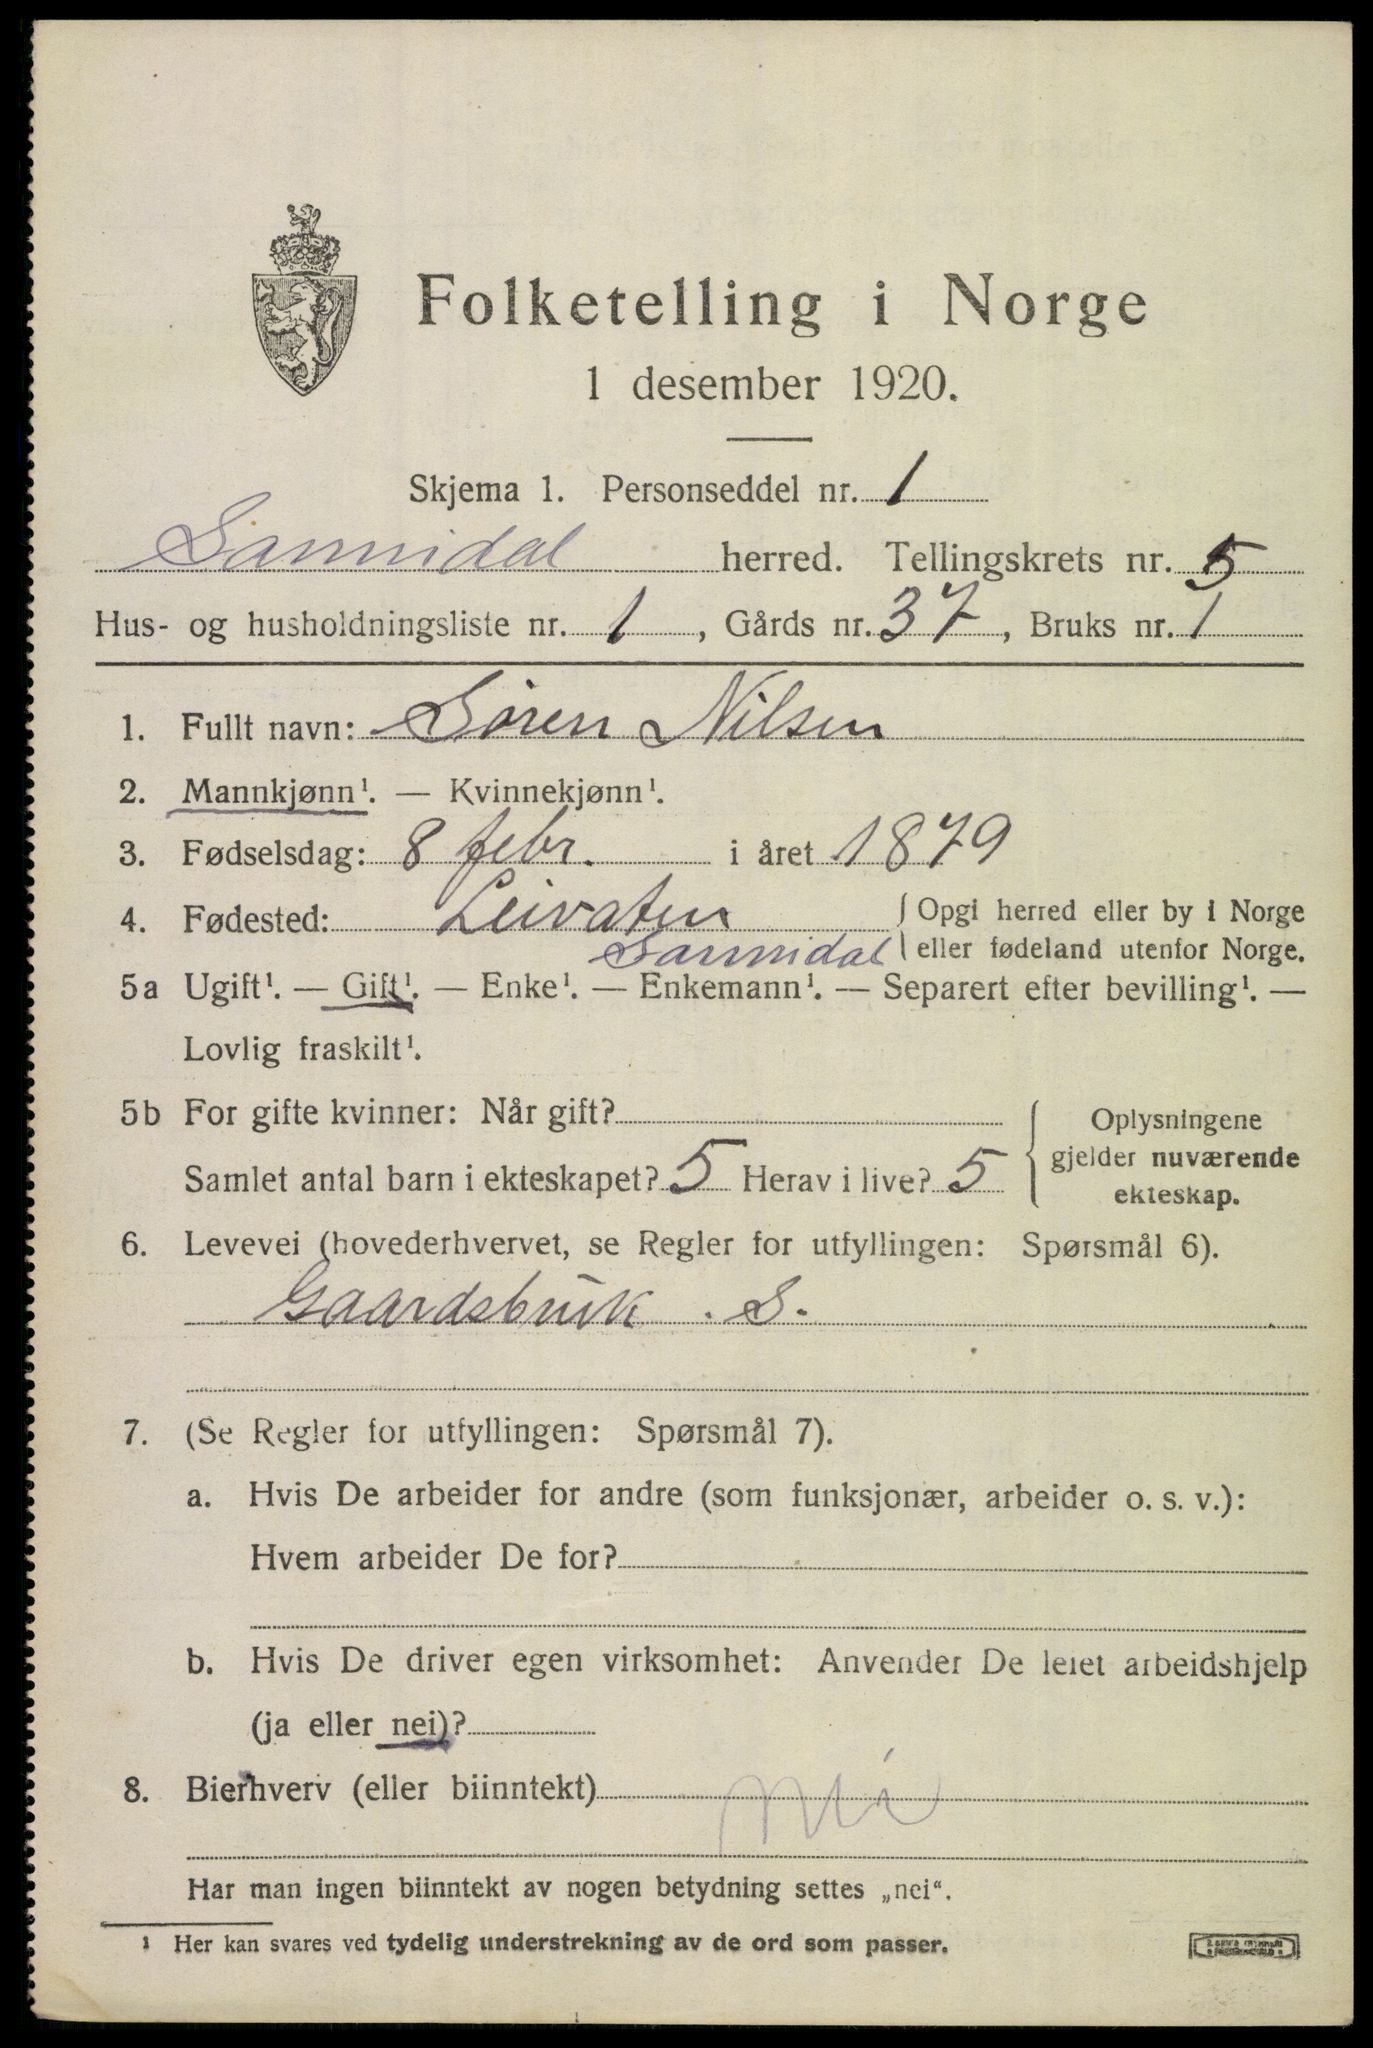 Folketelling i Norge
1 desember 1920.
Skjema 1. Personseddel nr. 1
Sannidal herred. Tellingskrets nr. 5
Hus- og husholdningsliste nr. 1, Gårds nr. 37, Bruks nr. 1
1. Fullt navn: Sören Nilsen
2. Mannkjønn¹. — Kvinnekjønn¹.
3. Fødselsdag: 8 febr. i året 1879
4. Fødested: Leivaten { Opgi herred eller by i Norge
Sannidal eller fødeland utenfor Norge.
5a Ugift¹. — Gift¹. — Enke¹. — Enkemann¹. — Separert efter bevilling¹. —
Lovlig fraskilt¹.
5b For gifte kvinner: Når gift? { Oplysningene
gjelder nuværende
ekteskap.
Samlet antal barn i ekteskapet? 5 Herav i live? 5
6. Levevei (hovederhvervet, se Regler for utfyllingen: Spørsmål 6).
Gaardsbruk . S.
7. (Se Regler for utfyllingen: Spørsmål 7).
a. Hvis De arbeider for andre (som funksjonær, arbeider o. s. v.):
Hvem arbeider De for?
b. Hvis De driver egen virksomhet: Anvender De leiet arbeidshjelp
(ja eller nei)?
8. Bierhverv (eller biinntekt) Nei
Har man ingen biinntekt av nogen betydning settes „nei“.
¹ Her kan svares ved tydelig understrekning av de ord som passer.